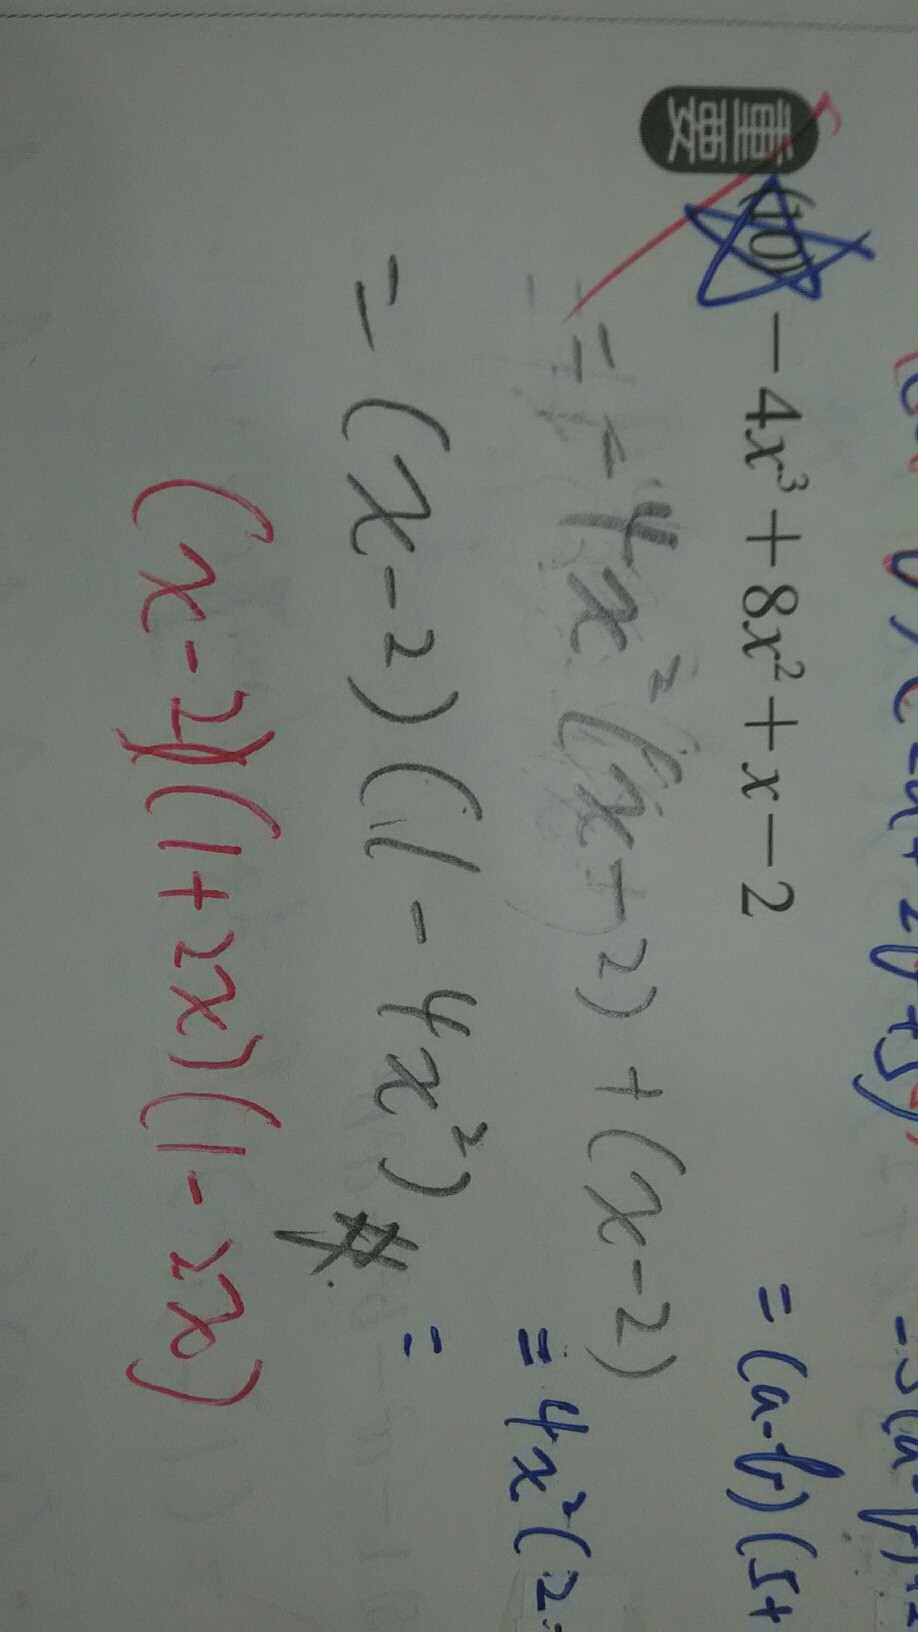 重要 (10) −4x³+8x²+x−2
= −4x²(x−2)+(x−2)
= (x−2)(1−4x²)#
(x−2)(1+2x)(1−2x)
=(a-b)(5+
=4x²(2-
=